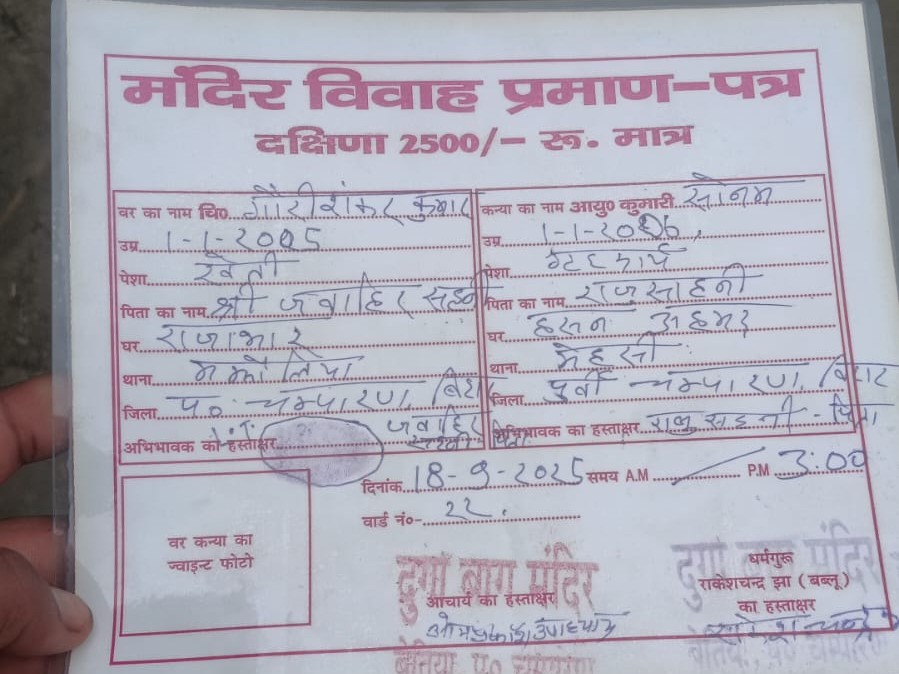 मंदिर विवाह प्रमाण-पत्र
दक्षिणा 2500/- रू. मात्र
वर का नाम चि० गौरीशंकर कुमार
उम्र 1-1-2005
पेशा खेती
पिता का नाम श्री जवाहिर सहनी
घर राजाभार
थाना मझौलिया
जिला प० चम्पारण, बिहार
अभिभावक का हस्ताक्षर जवाहिर
कन्या का नाम आयु० कुमारी सोनम
उम्र 1-1-2006
पेशा
पिता का नाम राजु साहनी
घर हसन अहमद
थाना मेहसी
जिला पूर्वी चम्पारण, बिहार
अभिभावक का हस्ताक्षर राजु सहनी - पिता
दिनांक 18-9-2025 समय A.M P.M 3:00
वार्ड नं०- 22.
वर कन्या का
ज्वाइन्ट फोटो
दुर्गा बाग मंदिर
आचार्य का हस्ताक्षर
ओमप्रकाश उपाध्याय
बेतिया प० चम्पारण
दुर्गा बाग मंदिर
धर्मगुरू
राकेशचन्द्र झा ( बब्लू )
का हस्ताक्षर
बेतिया, प० चम्पारण